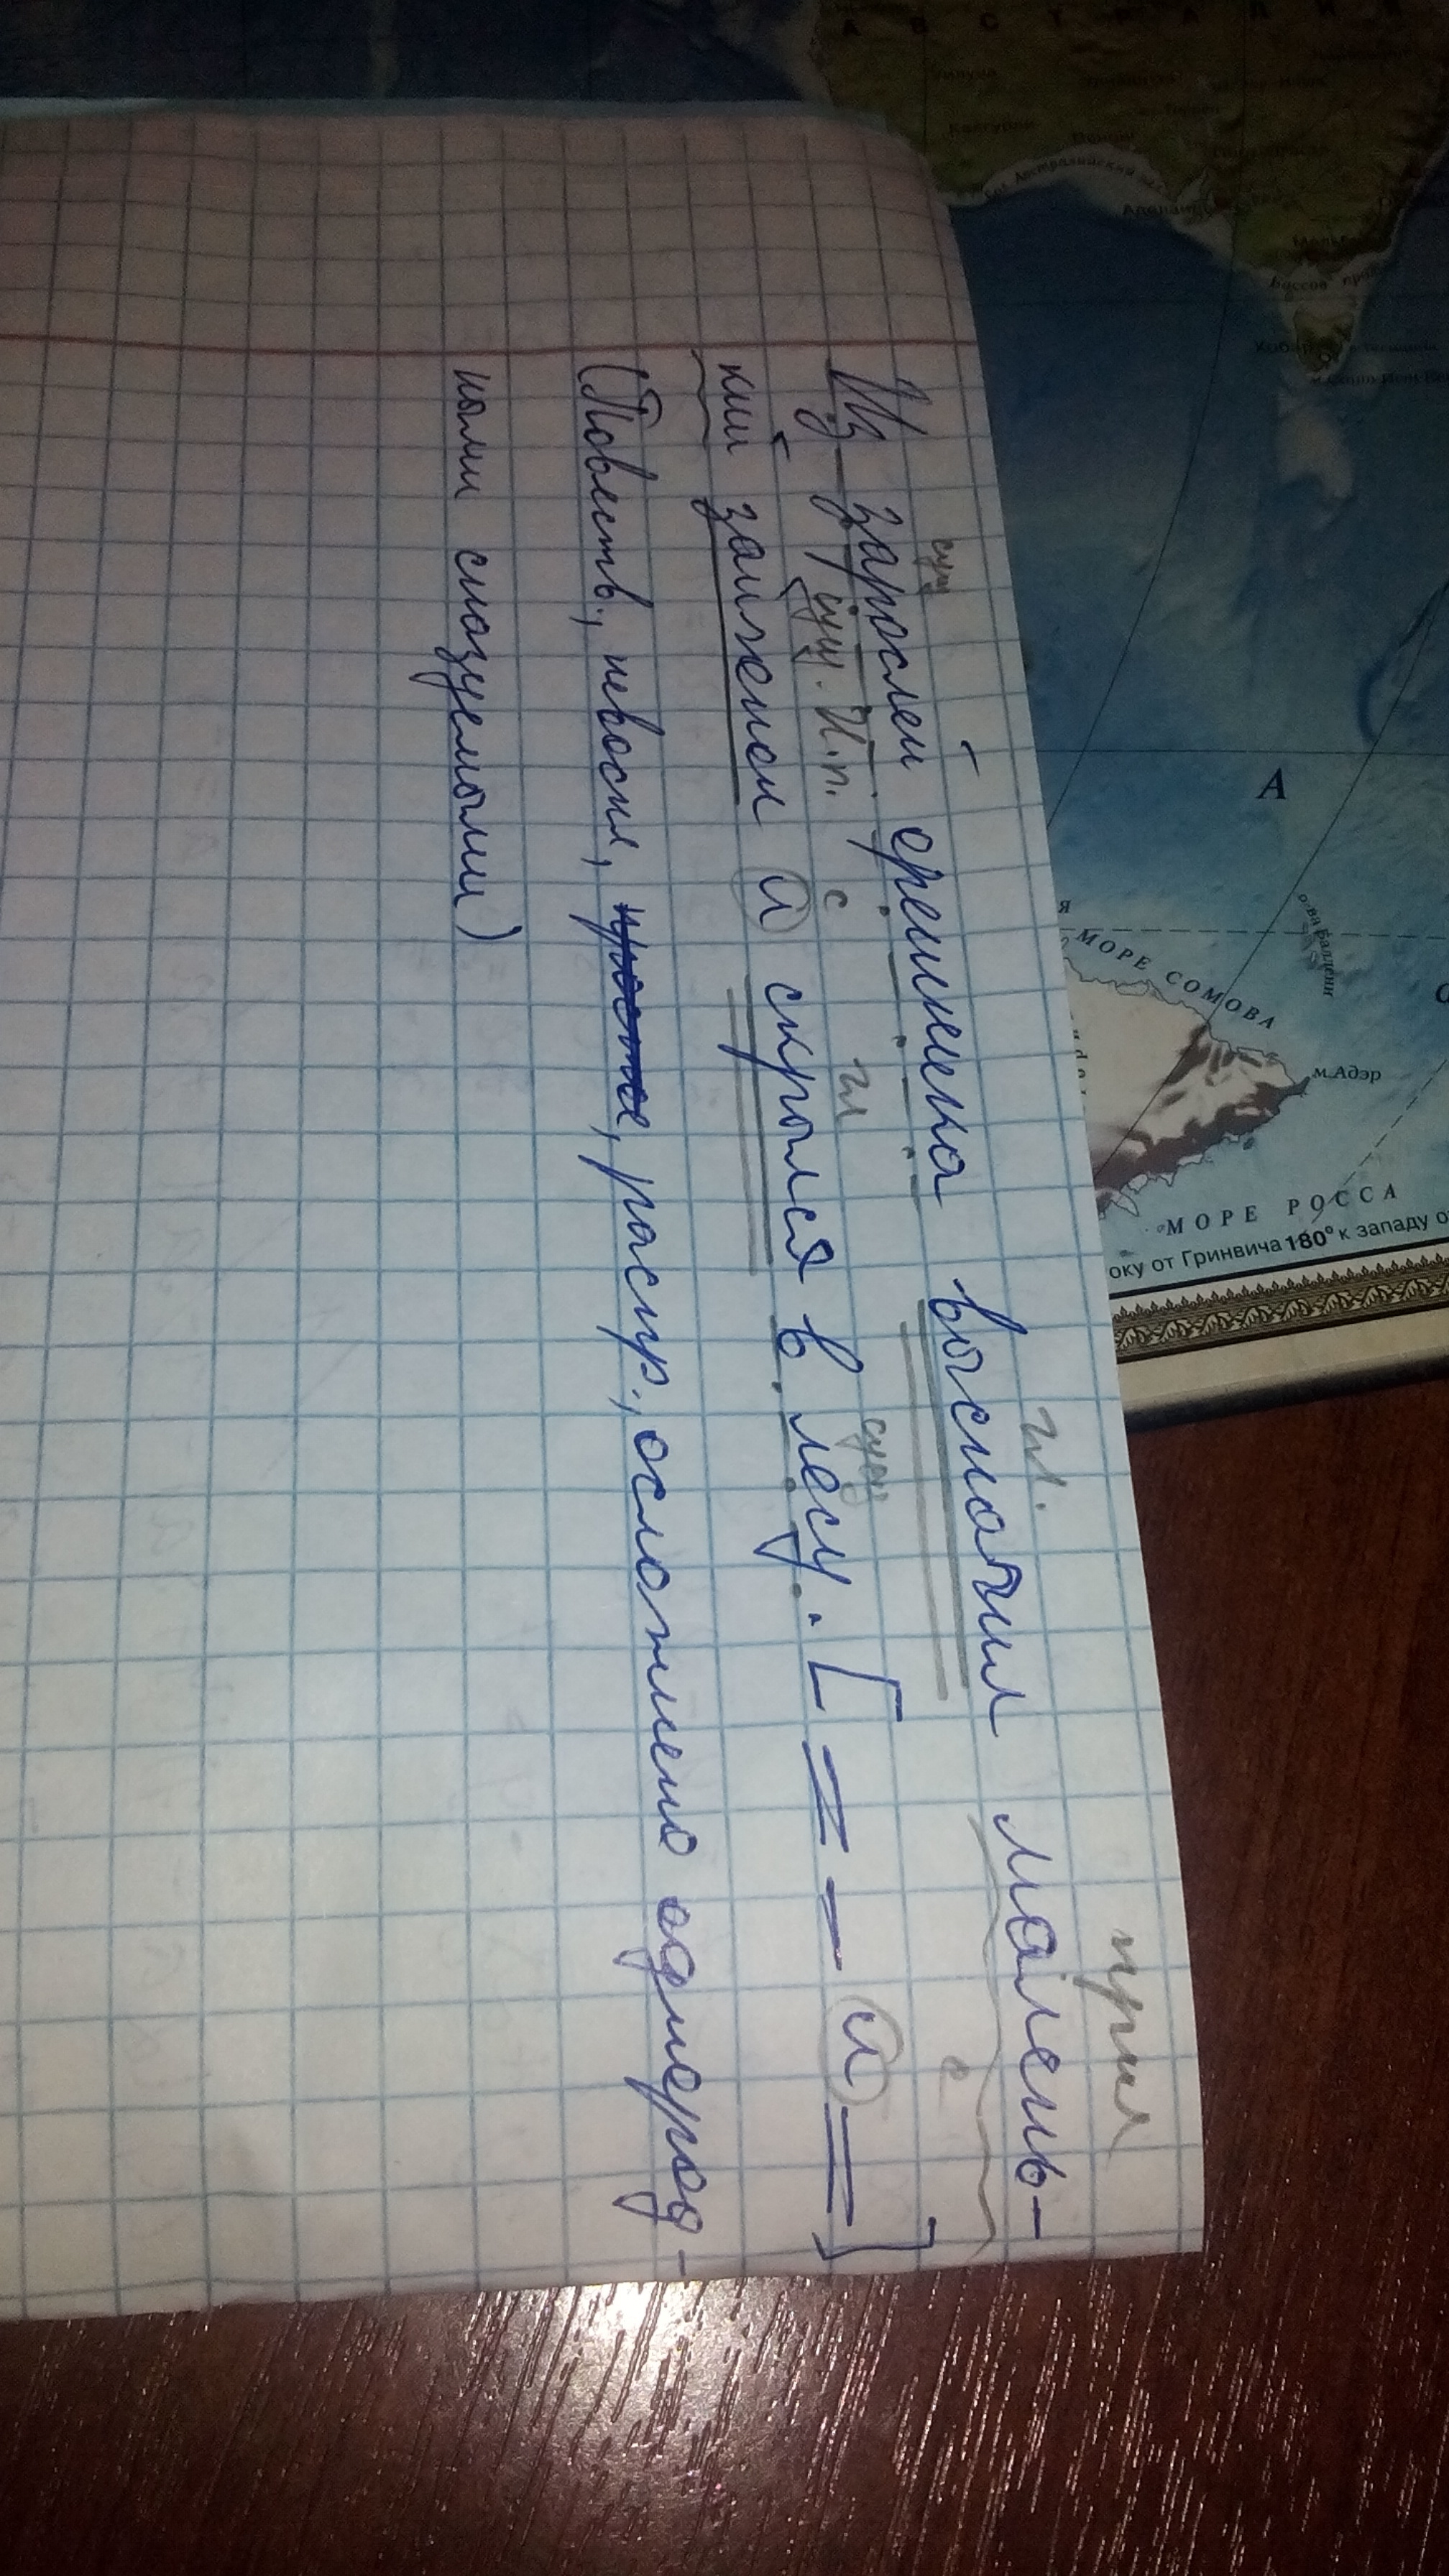 сущ гл. прил
Из зарослей орешника выскочил малень-
сущ. И.п. с гл сущ
кий зайчонок и скрылся в лесу. [= – и =]
(Повеств., невоскл, простое, распр., осложнено однород-
ными сказуемыми)
АВСТРАЛИЯ
Калгурли
Аделаида
Хобарт
А
о-ва Баллени
МОРЕ СОМОВА
м.Адэр
МОРЕ РОССА
оку от Гринвича 180° к западу о